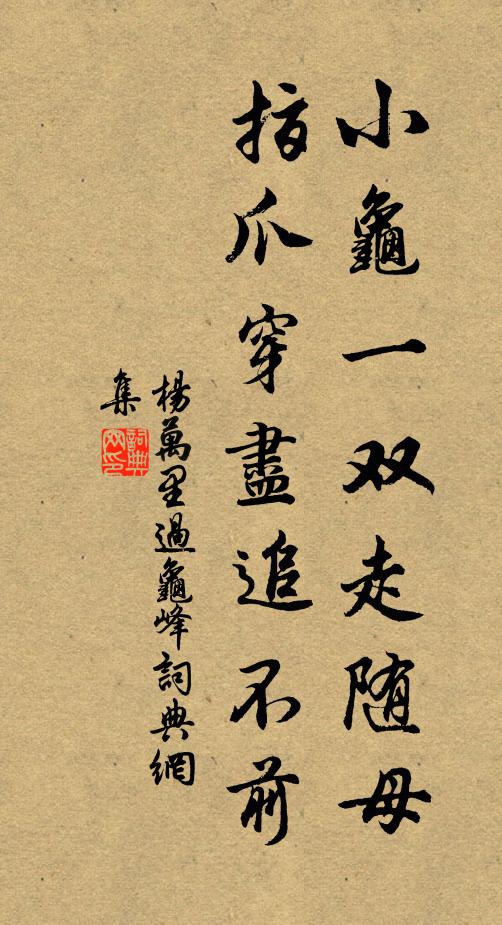 小龜一双走随母
指爪穿盡追不前
楊萬里過龜峰詞典網
集
詞典网印